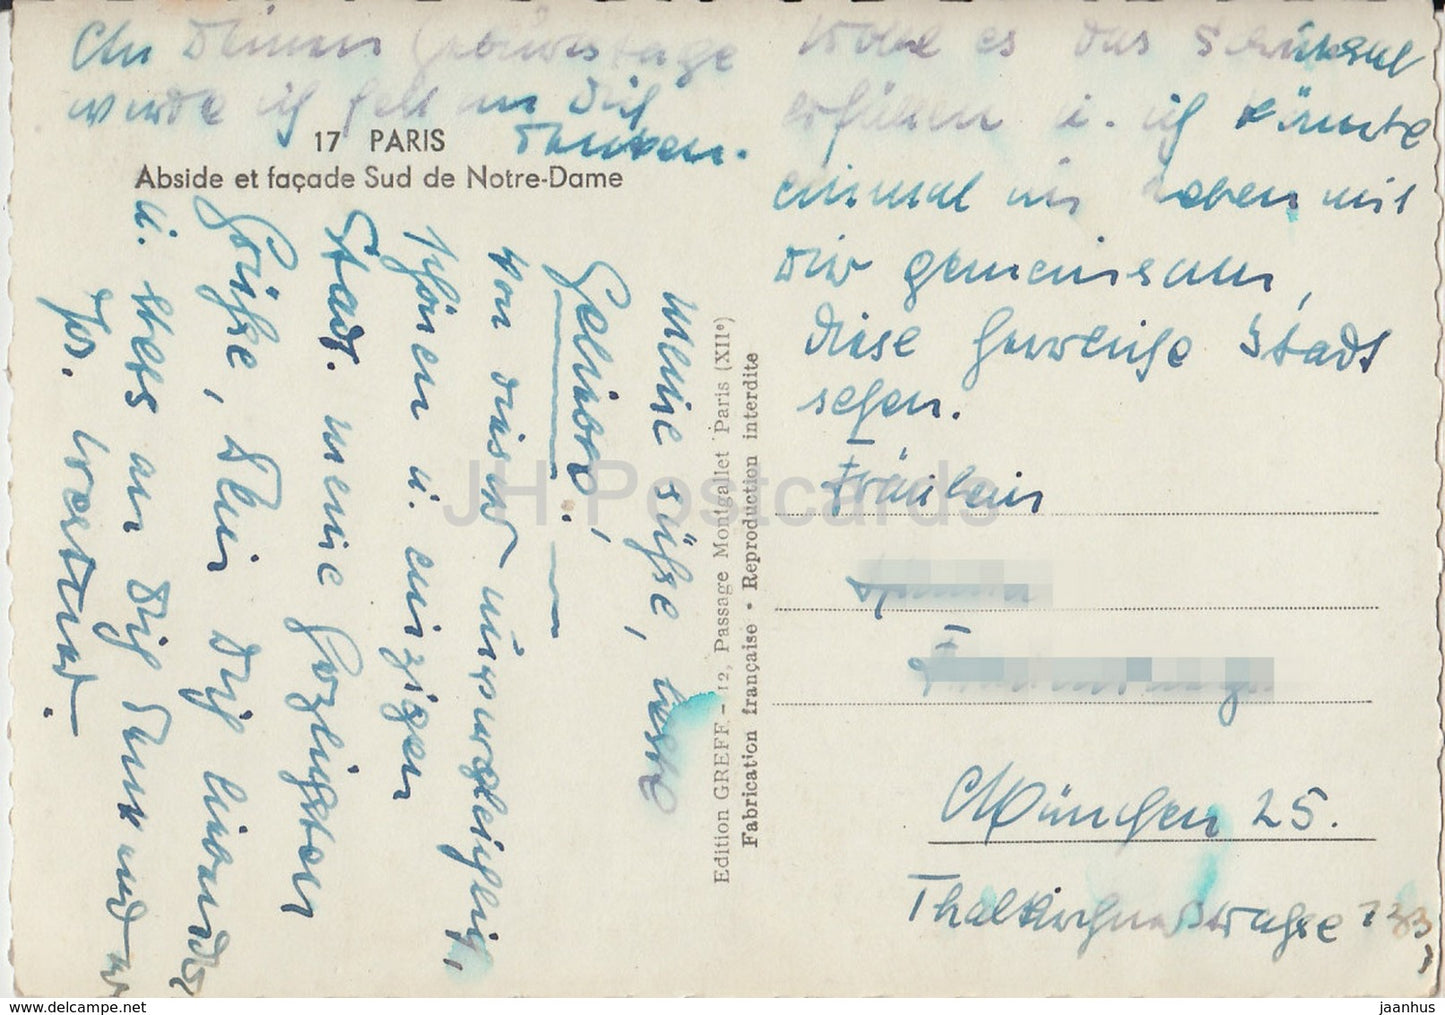 An Deinem Geburtstage
werde ich fest an Dich
denken.
17 PARIS
Abside et façade Sud de Notre-Dame
Meine süße, beste
Geliebte!
Von dieser unvergleichlich
schönen u. einzigen
Stadt. meine herzlichsten
Grüße, Dein Dich liebender
u. stets an Dich denkender
Edition GREFF - 12, Passage Montgallet Paris (XIIe)
Fabrication française • Reproduction interdite
Wolle es das Schicksal
erfüllen u. ich könnte
einmal im Leben mit
Dir gemeinsam,
diese herrliche Stadt
sehen.
Fräulein
München 25.
Thalkirchnerstrasse
JH Postcards
https://www.ebay.com/usr/jaanhus
jaanhus